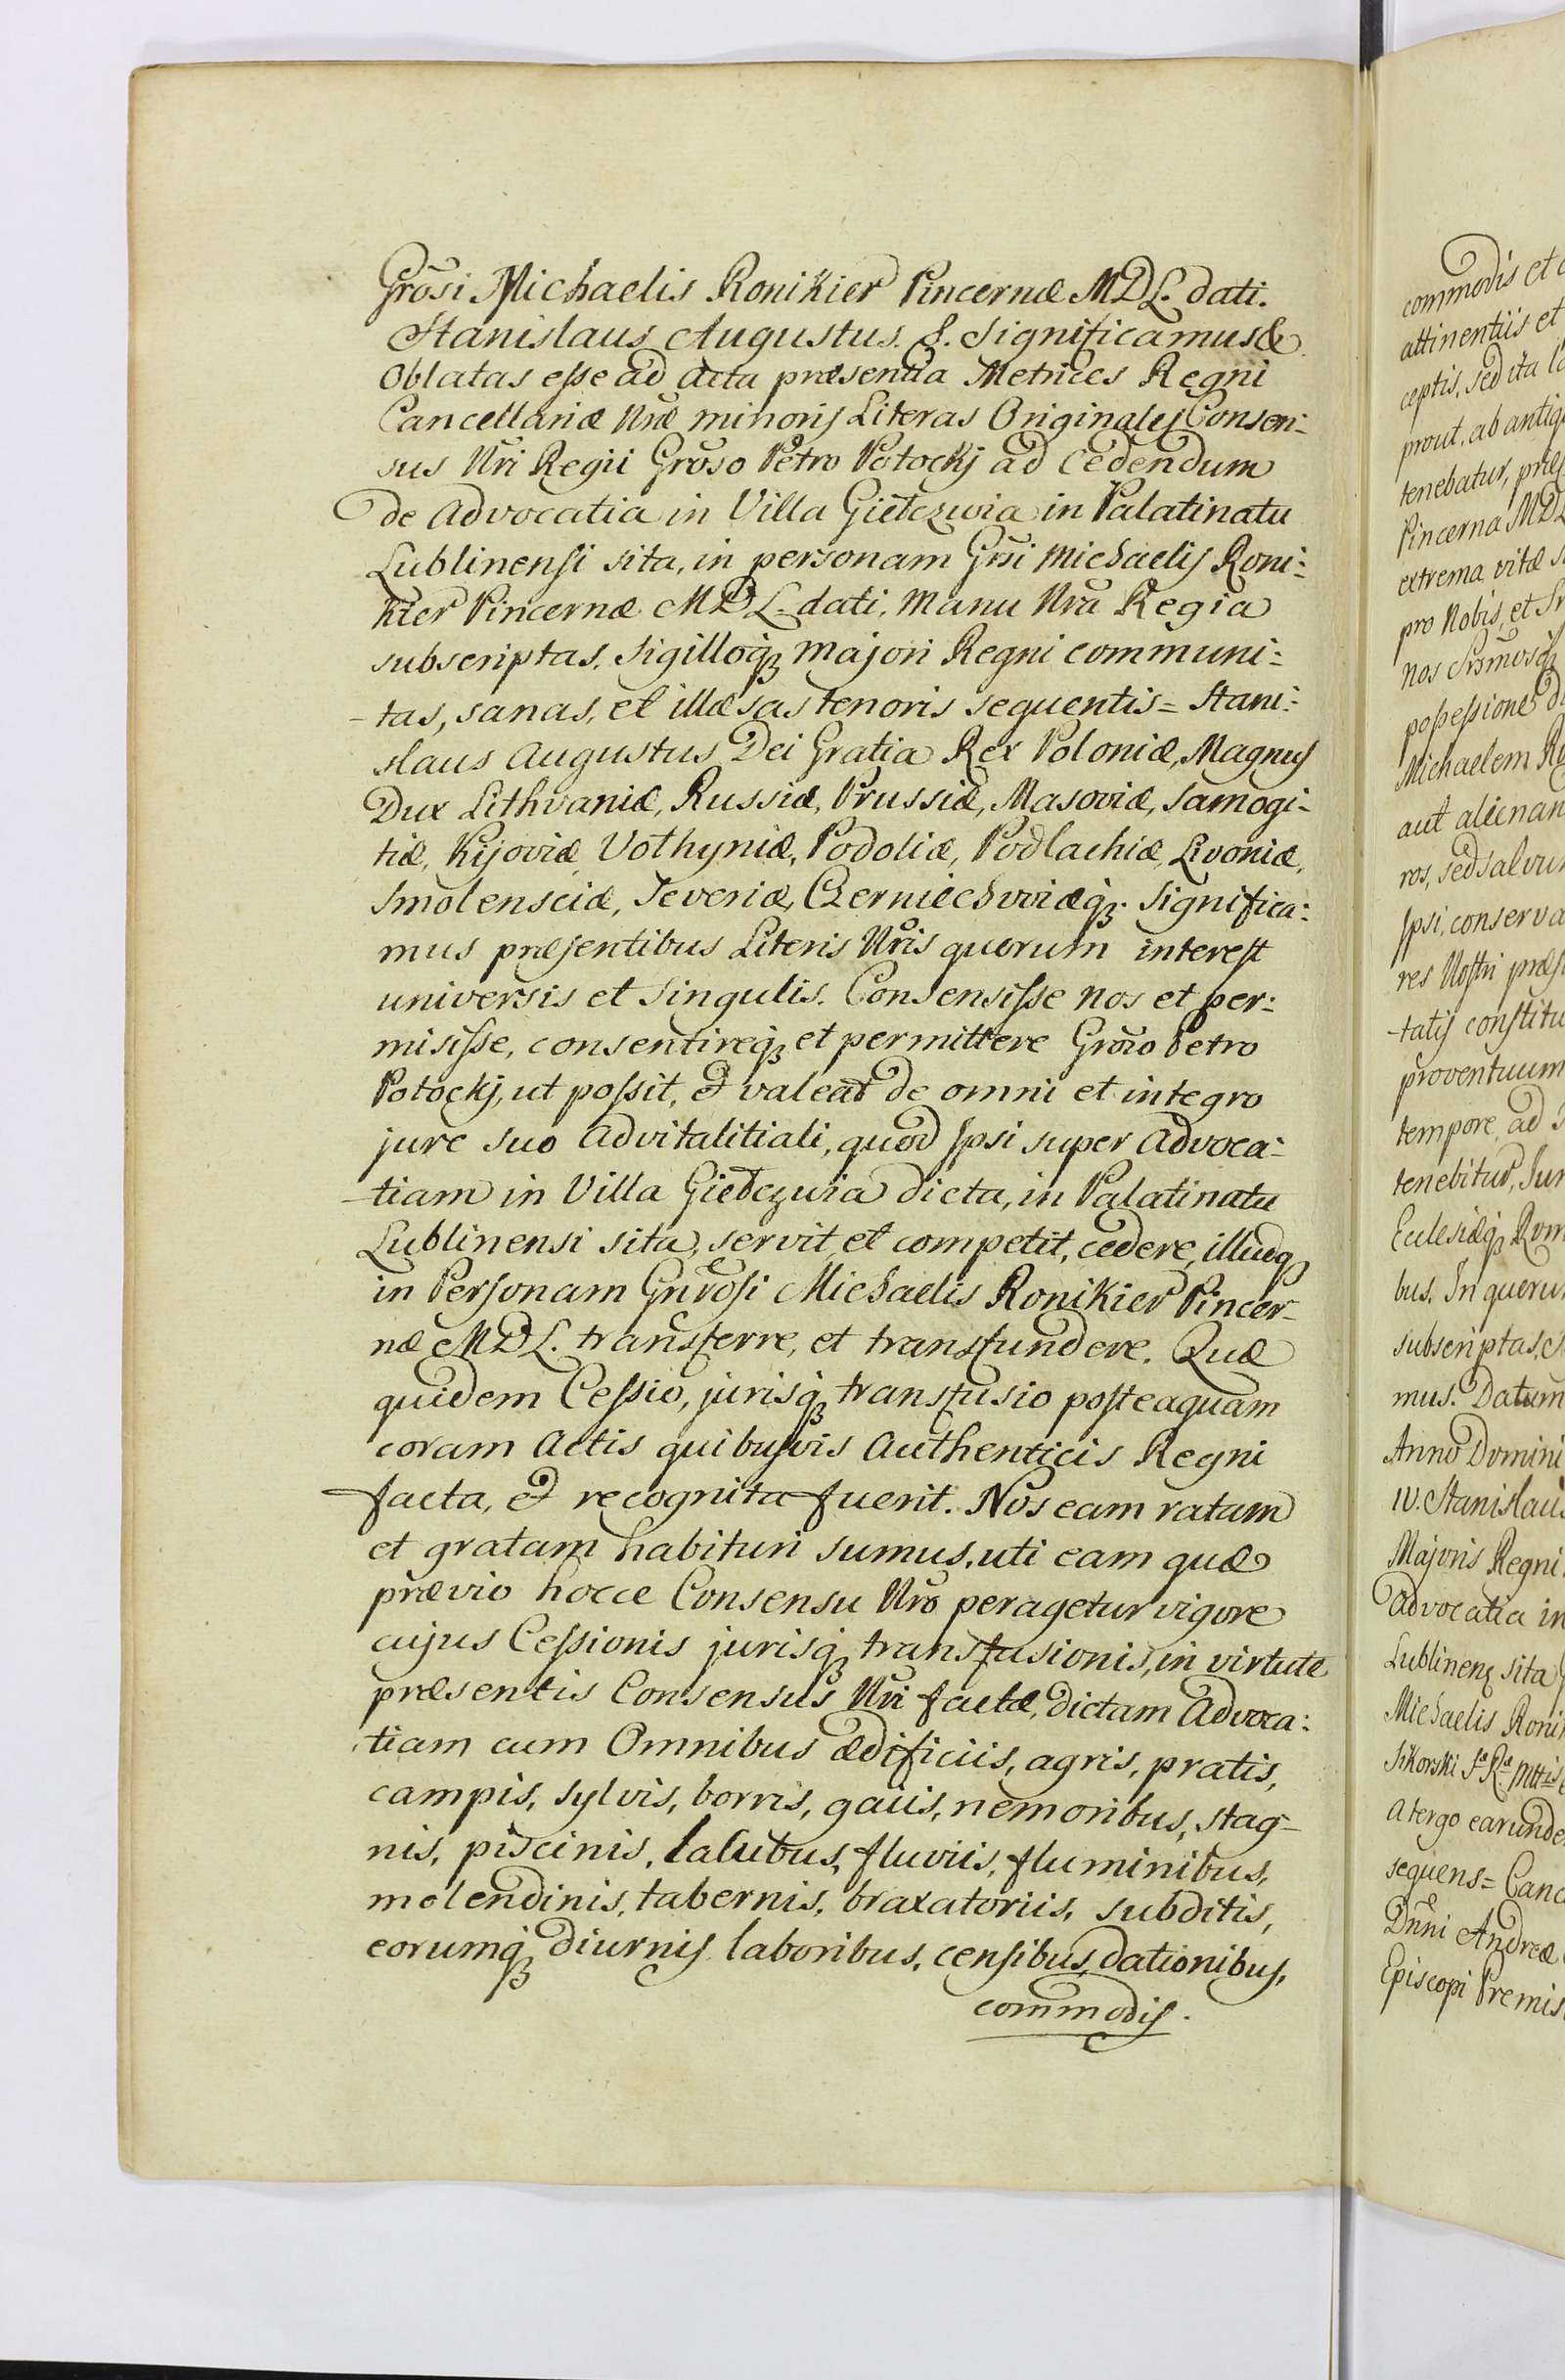 Grõsi Michaelis Ronikier Pincernæ MDL. dati.
Stanislaus Augustus. S. Significamus &
Oblatas eſse ad Acta præsentia Metrices Regni
Cancellariæ Nræ minoris Literas Originales Consen:
sus Nri Regii Grõso Petro Potockj ad Cedendum
de Advocatia in Villa Giełczwia in Palatinatu
Lublinensi sita, in personam Grsi Michaelis Roni:
kier Pincernæ MDL. dati, Manu Nra Regia
subscriptas, Sigilloq; majori Regni communi:
-tas, sanas, et illæsas tenoris sequentis = Stani:
slaus Augustus Dei Gratia Rex Poloniæ, Magnus
Dux Lithvaniæ, Russiæ, Prussiæ, Masoviæ, Samogi-
tiæ, Kijoviæ, Volhyniæ, Podoliæ, Podlachiæ, Livoniæ,
Smolensciæ, Severiæ, Czerniechviæq; Significa:
mus præsentibus Literis Nris quorum interest
universis et Singulis. Consensiſse nos et per:
misiſse, consentireq; et permittere Grõso Petro
Potockj, ut poſsit, & valeat de omni et integro
jure suo Advitalitiali, quod Ipsi super Advoca:
-tiam in Villa Giełczwia dicta, in Palatinatu
Lublinensi sita, servit et competit, cedere, illudq;
in Personam Gnrõsi Michaelis Ronikier Pincer-
næ MDL. transferre, et transfundere. Quæ
quidem Ceſsio, jurisq; transfusio posteaquam
coram Actis quibusvis Authenticis Regni
facta, & recognita fuerit. Nos eam ratam
et gratam habituri sumus, uti eam quæ
prævio hocce Consensu Nro peragetur vigore
cujus Ceſsionis jurisq; transfusionis, in virtute
præsentis Consensus Nri factæ, dictam Advoca:
tiam cum Omnibus ædificiis, agris, pratis,
campis, sylvis, borris, gaiis, nemoribus, stag-
nis, piscinis, lacubus, fluviis, fluminibus,
molendinis, tabernis, braxatoriis, subditis,
eorumq; diurnis laboribus, censibus, dationibus,
commodis.
commodis et
attinentiis et
ceptis, sed ita
prout ab antiq
tenebatur,
Pincerna MDL
extrema vitæ
pro Nobis, et
nos
poſseſsione
Michaelem
aut alienan
ros, sed salvu
Ipsi conserva
res Nostri præs
-tatis constitu
proventuum
tempore ad
tenebitur, Jur
Eclesiæq; Rom
bus. In quoru
subscriptas,
mus. Datum
Anno Domini
IV. Stanislaus
Majoris Regni
Advocatia in
Lublinens sita
Michaelis Roni
Sikorski
A tergo earunde
sequens = Canc
Dnni Andreæ
Episcopi Premis